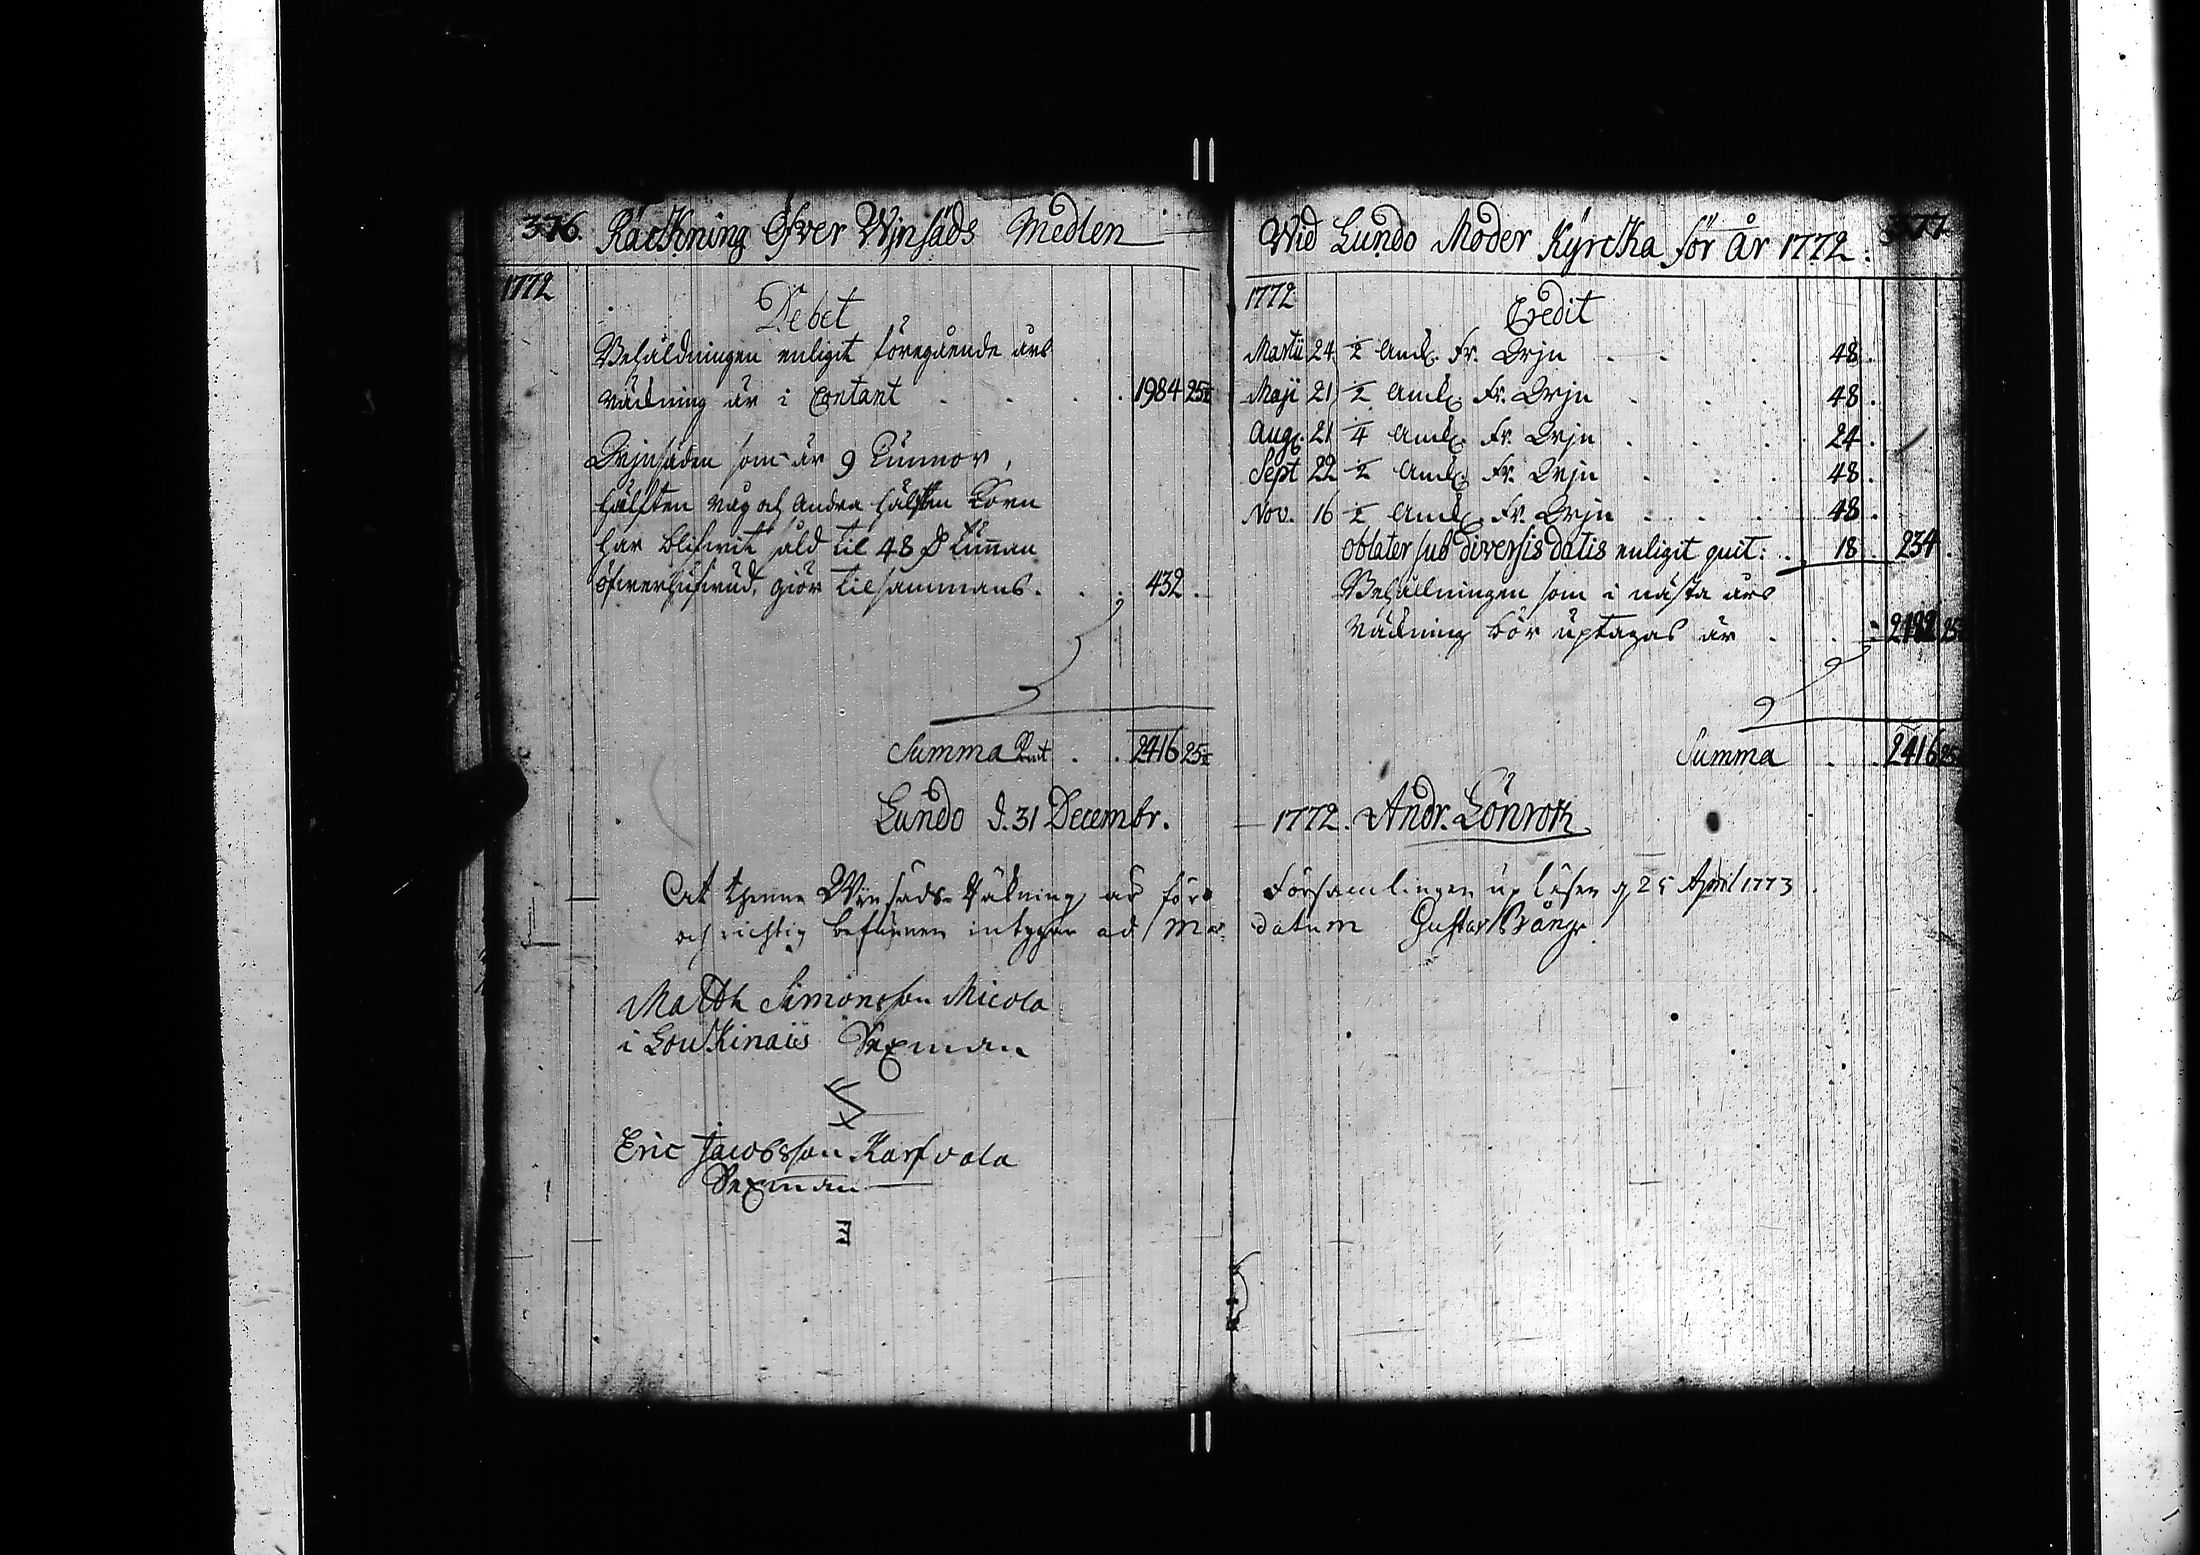 376. Räckning Öfver Wjnsäds Medlen
1772
Debet
Behåldningen enligit föregående års
räckning är i Contant . . . . 1984 25
Wjnsäden som är 9 Tunnor,
hälften råg och andra hälften Korn
har blifwit såld til 48 D Tunnan
öfwerhufwud, giör tilsammans . . . 432.
Summa . . 2416 25
Lundo d. 31 Decembr.
At thenne Wijnsäds-Räkning är för
och richtig befunnen intygar
Matth Simonsson Micola
i Louskinais Sexman
Eric Jacobsson Karfvala
Sexman
Wid Lundo Moder Kyrcka för År 1772. 377
1772
Credit
Martii 24 1/2 Fr. Wjn . . . 48.
Maji 21 1/2 Fr. Wjn . . . 48.
Aug. 21 1/4 Fr. Wjn . . . 24.
Sept 22 1/2 Fr. Wjn . . . 48.
Nov. 16 1/2 Fr. Wjn . . . 48.
Oblater sub diversis datis enligit quit: . 18. 234.
Behållningen som i nästa års
räckning bör uptagas är . . . 2182 25
Summa . . 2416 25
1772. Andr. Lönrot
Församlingen up läsen d. 25 April 1773
datum Gustav Prånge